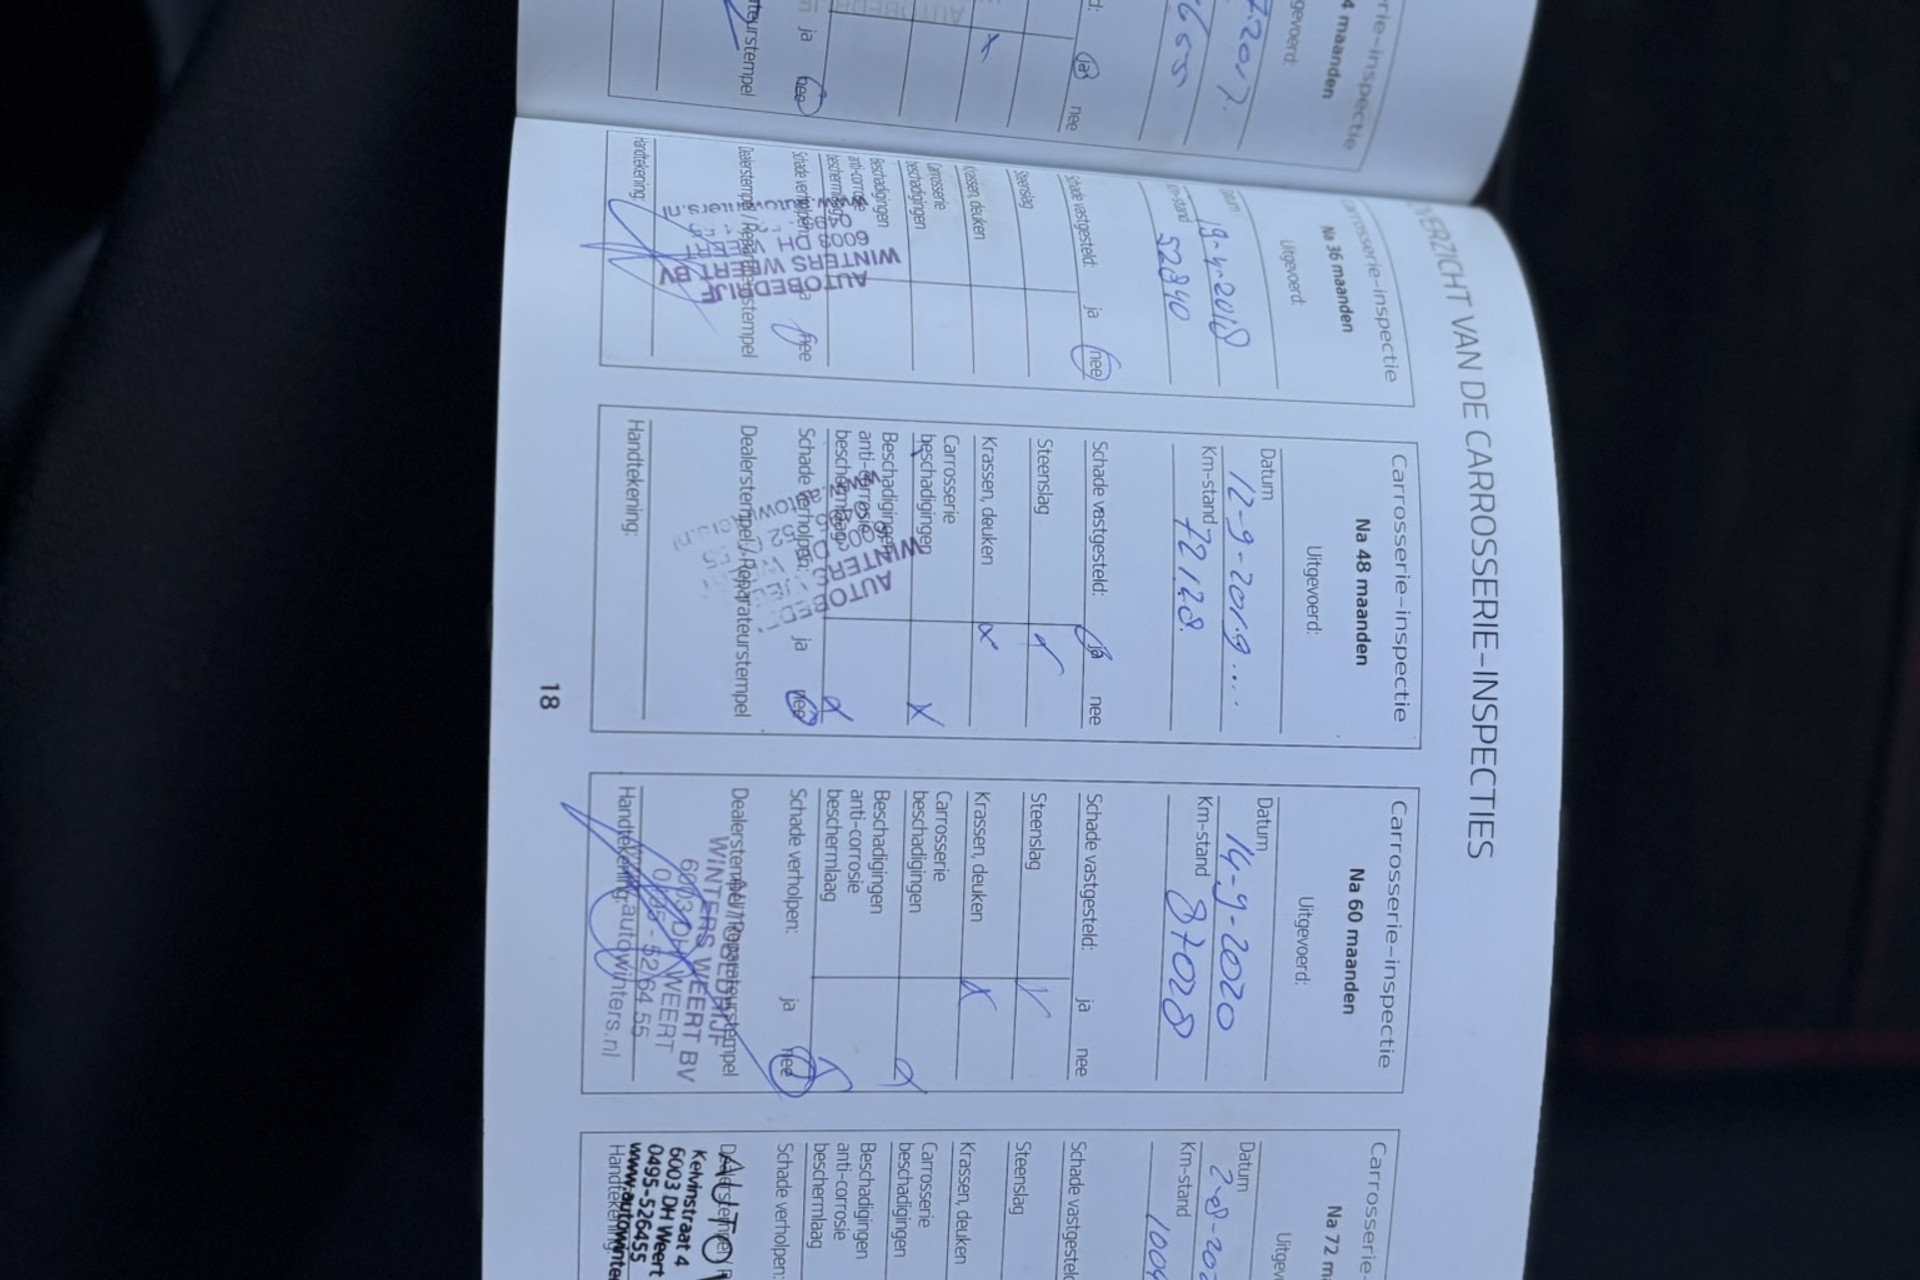 OVERZICHT VAN DE CARROSSERIE-INSPECTIES
rie-inspectie
4 maanden
gevoerd:
ja nee
ja nee
teurstempel
arrosserie-inspectie
Na 36 maanden
Uitgevoerd:
Datum
19-4-2018
Km-stand
52840
Schade vastgesteld: ja nee
Steenslag
Krassen, deuken
Carrosserie
beschadigingen
Beschadigingen
anti-corrosie
beschermlaag
Schade verholpen: ja nee
Dealerstempel / Reparateurstempel
AUTOBEDRIJF
WINTERS WEERT BV
6003 DH WEERT
www.autowinters.nl
Handtekening:
Carrosserie-inspectie
Na 48 maanden
Uitgevoerd:
Datum
12-9-2019...
Km-stand
72128.
Schade vastgesteld: ja nee
Steenslag
Krassen, deuken
Carrosserie
beschadigingen
Beschadigingen
anti-corrosie
beschermlaag
Schade verholpen: ja nee
Dealerstempel / Reparateurstempel
AUTOBED
WINTERS
6003 DH
Handtekening:
Carrosserie-inspectie
Na 60 maanden
Uitgevoerd:
Datum
14-9-2020
Km-stand
87028
Schade vastgesteld: ja nee
Steenslag
Krassen, deuken
Carrosserie
beschadigingen
Beschadigingen
anti-corrosie
beschermlaag
Schade verholpen: ja nee
Dealerstempel / Reparateurstempel
AUTOBEDRIJF
WINTERS WEERT BV
6003 DH WEERT
0495 - 52 64 55
www.autowinters.nl
Handtekening:
Carrosserie-
Na 72 m
Uitgev
Datum
2-08-202
Km-stand
1004
Schade vastgesteld
Steenslag
Krassen, deuken
Carrosserie
beschadigingen
Beschadigingen
anti-corrosie
beschermlaag
Schade verholpen:
AUTO
Kelvinstraat 4
6003 DH Weert
0495-526455
www.autowinte
Handtekening
18